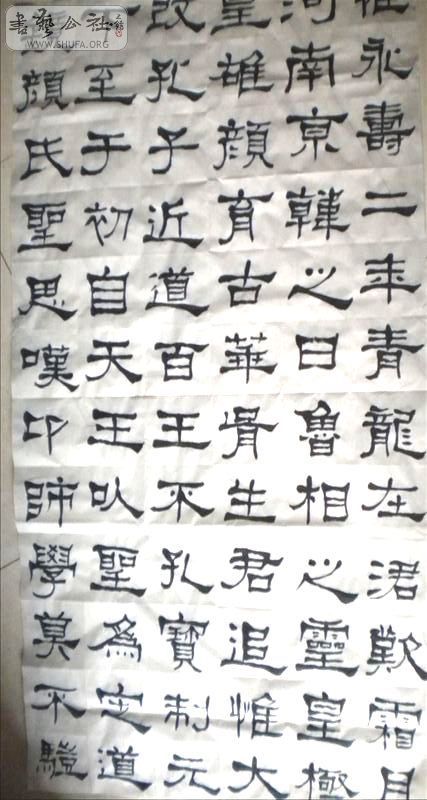 惟永壽二年青龍在涒歎霜月
河南京韓之曰魯相之靈皇極
皇雄顏育古華胥生君追惟大
改孔子近道百王不孔寶制元
至于初自天王以聖為定道
顏氏聖思嘆卬師學莫不驗
書藝公社
WWW.SHUFA.ORG